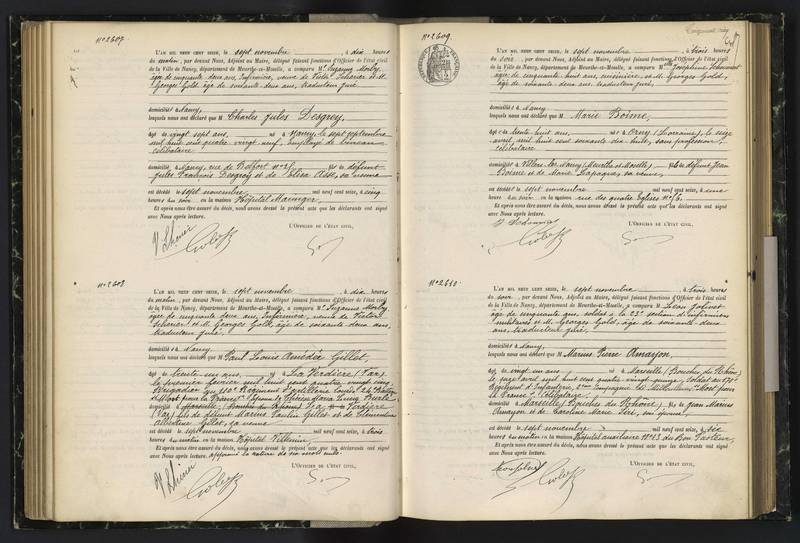 N° 2607
L'AN MIL NEUF CENT SEIZE, le sept novembre, à dix heures
du matin, par devant Nous, Adjoint au Maire, délégué faisant fonctions d'Officier de l'état civil
de la Ville de Nancy, département de Meurthe-et-Moselle, a comparu Me Suzanne Morby,
âgée de cinquante deux ans, Infirmière, veuve de Victor Scherier et M.
Georges Gold, âgé de soixante deux ans, traducteur juré,
domiciliés à Nancy,
lesquels nous ont déclaré que M Charles Jules Desgrey,
âgé de vingt sept ans, né à Nancy, le sept septembre
mil huit cent quatre vingt neuf, employé de bureau
célibataire
domicilié à Nancy, rue de Belfort n°, fils de défunt
Jules François Desgrey et de
est décédé le sept novembre, mil neuf cent seize, à cinq
heures du soir, en la maison Hôpital Maringer,
Et après nous être assuré du décès, nous avons dressé le présent acte que les déclarants ont signé
avec Nous après lecture.
L'OFFICIER DE L'ÉTAT CIVIL,
N° 2608
L'AN MIL NEUF CENT SEIZE, le sept novembre, à dix heures
du matin, par devant Nous, Adjoint au Maire, délégué faisant fonctions d'Officier de l'état civil
de la Ville de Nancy, département de Meurthe-et-Moselle, a comparu Me Suzanne Morby,
âgée de cinquante deux ans, Infirmière, veuve de Victor
Scherier et M. Georges Gold, âgé de soixante deux ans,
traducteur juré,
domiciliés à Nancy
lesquels nous ont déclaré que M Paul Louis Amédée Gillet,
âgé de trente un ans, né à La Verdière (Var)
le premier février mil huit cent quatre vingt cinq
Brigadier au Régiment d'artillerie
"Mort pour la France", époux de Thérèse Maria
domicilié à La Verdière
(Var) fils de défunt Marius Paulin Gillet et de Clémentine
Albertine Gillet, sa veuve
est décédé le sept novembre mil neuf cent seize, à trois
heures du matin en la maison Hôpital Villemin,
Et après nous être assuré du décès, nous avons dressé le présent acte que les déclarants ont signé
avec Nous après lecture.
L'OFFICIER DE L'ÉTAT CIVIL,
N° 2609.
L'AN MIL NEUF CENT SEIZE, le sept novembre, à trois heures
du soir, par devant Nous, Adjoint au Maire, délégué faisant fonctions d'Officier de l'état civil
de la Ville de Nancy, département de Meurthe-et-Moselle, a comparu Me Joséphine
âgée de cinquante huit ans, cuisinière, et M. Georges Gold,
âgé de soixante deux ans, traducteur juré,
domiciliés à Nancy
lesquels nous ont déclaré que M Marie Boime,
âgée de trente huit ans, née à Orny (Lorraine), le seize
avril mil huit cent soixante dix huit, sans profession,
célibataire
domiciliée à Villers-les-Nancy (Meurthe et Moselle), fille de défunt Jean
Boime et de Marie Lapagne, sa veuve,
est décédée le sept novembre mil neuf cent seize, à une
heure du soir en la maison rue des quatre Eglises n° 6.
Et après nous être assuré du décès, nous avons dressé le présent acte que les déclarants ont signé
avec Nous après lecture.
L'OFFICIER DE L'ÉTAT CIVIL,
N° 2610
L'AN MIL NEUF CENT SEIZE, le sept novembre, à trois heures
du soir, par devant Nous, Adjoint au Maire, délégué faisant fonctions d'Officier de l'état civil
de la Ville de Nancy, département de Meurthe-et-Moselle, a comparu M. Jean Jolivet
âgé de cinquante ans, soldat à la 23e section d'infirmiers
militaires et M. Georges Gold, âgé de soixante deux
ans, traducteur juré,
domiciliés à Nancy,
lesquels nous ont déclaré que M Marius Pierre Amayon,
âgé de vingt un ans, né à Marseille (Bouches du Rhône)
le seize avril mil huit cent quatre vingt quinze, soldat au
Régiment d'Infanterie, Compagnie de Mitrailleuses "Mort pour
la France", célibataire
domicilié à Marseille (Bouches du Rhône) fils de Jean Marius
Amayon et de Caroline Marie Féri, son épouse,
est décédé le sept novembre mil neuf cent seize, à six
heures du matin en la maison Hôpital auxiliaire n° 13 du Bon Pasteur,
Et après nous être assuré du décès, nous avons dressé le présent acte que les déclarants ont signé
avec Nous après lecture.
L'OFFICIER DE L'ÉTAT CIVIL,